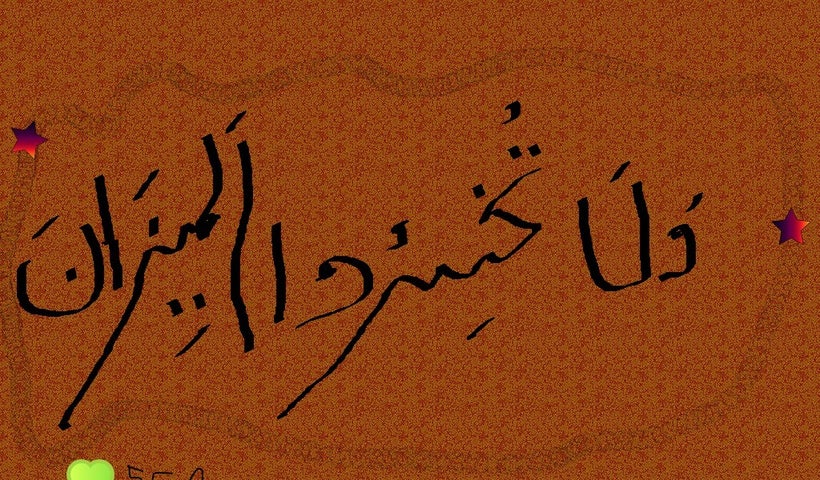 وَلَا تُخْسِرُوا الْمِيزَانَ